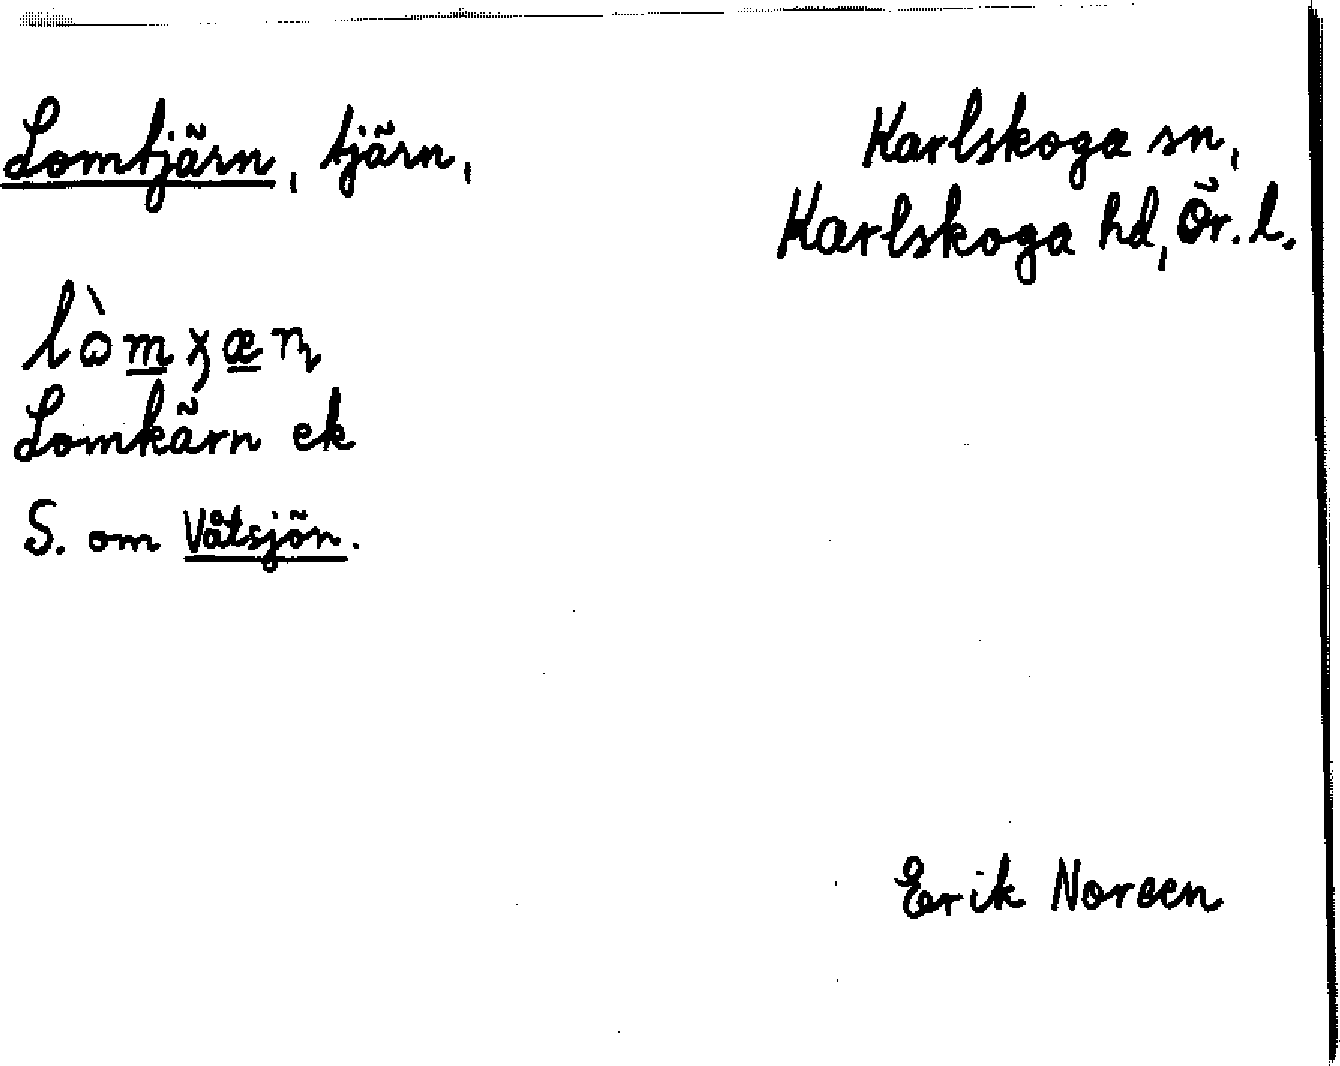 Lomtjärn, tjärn,
Karlskoga sn,
Karlskoga hd, Ör. l.
lòmχæɳ
Lomkärn ek
S. om Våtsjön.
Erik Noreen